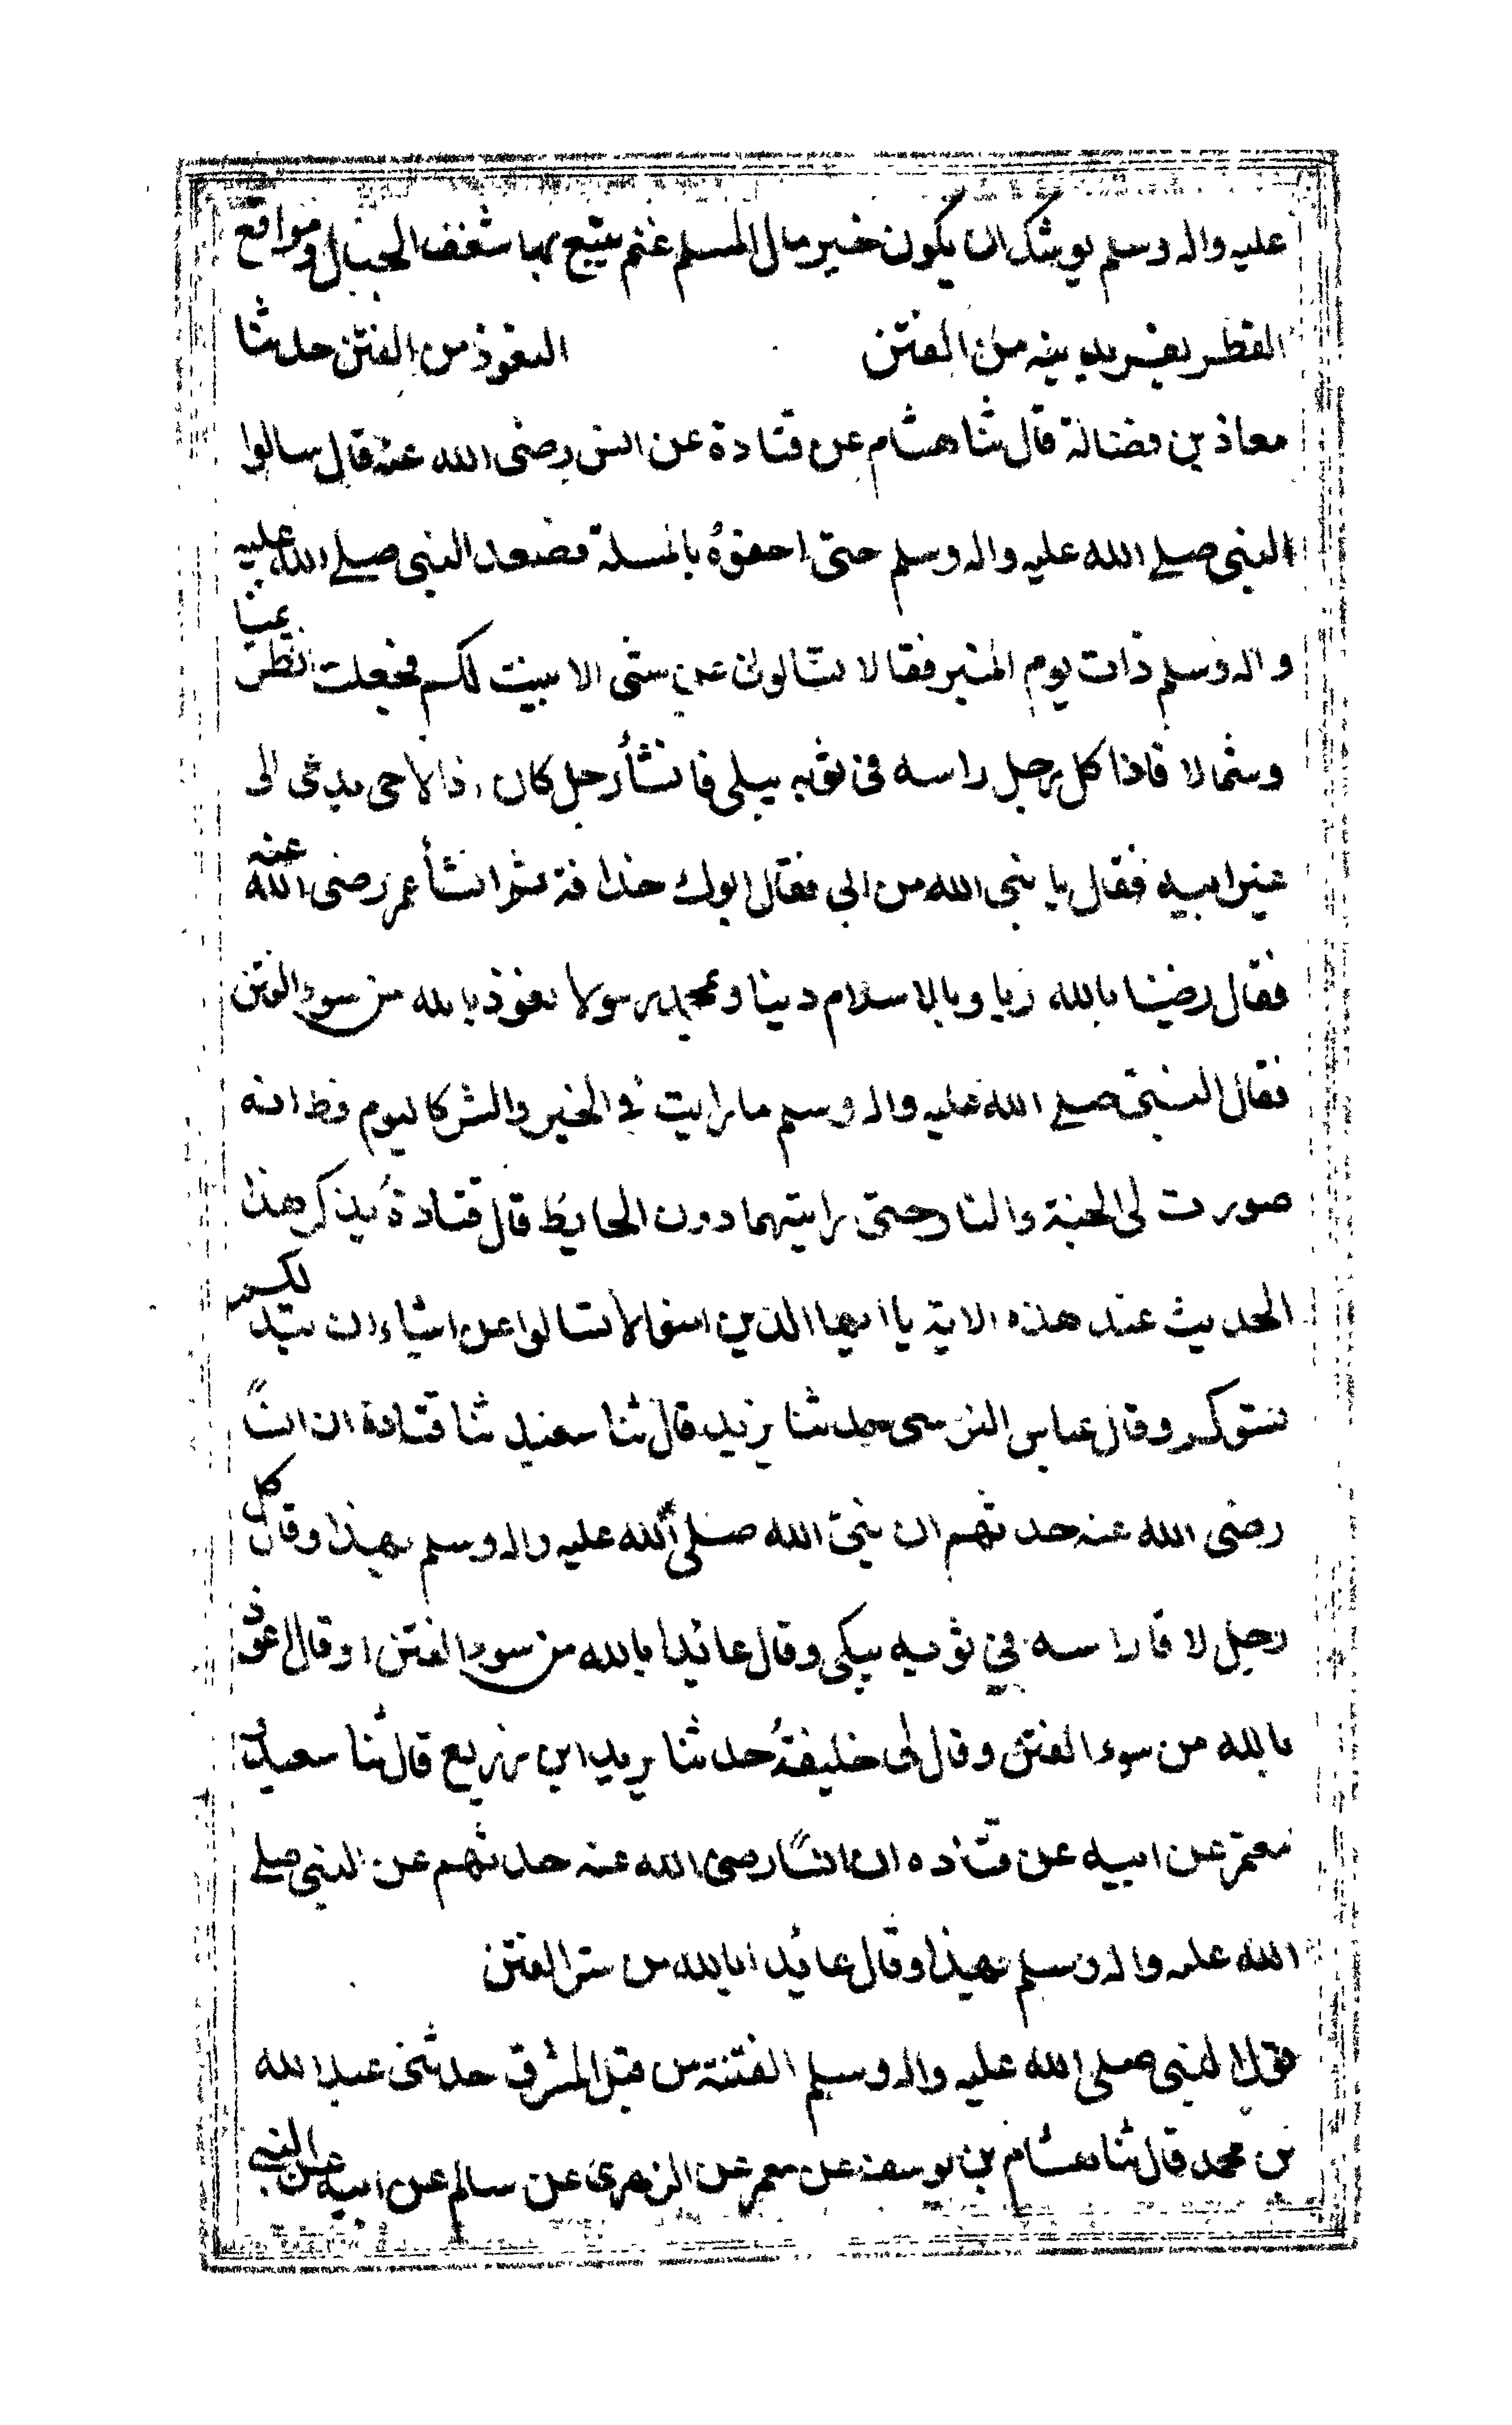 عليه واله وسلم يوشك ان يكون خير مال المسلم غنم يتبع بها شغف الجبال ومواقع
القطر يفر بدينه من الفتن التعوذ من الفتن حدثنا
معاذ بن فضالة قال ثنا هشام عن قتادة عن انس رضى الله عنه قال سالوا
النبى صلے الله عليه واله وسلم حتى احفوهُ بالمسلة فصعد النبى صلے الله عليه
واله وسلم ذات يوم المنبر فقال لا تسالونى عن شى الا بينت لكم فجعلت انظر يمينا
وشمالا فاذا كل رجل راسه فى ثوبه يبكى فانشأ رجل كان اذا لاحى يدعى الى
غير ابيه فقال يا نبى الله من ابى فقال ابوك حذافة ثم انشأ عمر رضى الله عنه
فقال رضينا بالله ربا وبالاسلام دينا وبمحمد رسولا نعوذ بالله من سوء الفتن
فقال النبى صلے الله عليه واله وسلم ما رايت فى الخير والشر كاليوم قط انه
صورت لى الجنة والنار حتى رايتهما دون الحايط قال قتادةُ يذكر هذا
الحديث عند هذه الاية يا ايها الذين امنوا لا تسالوا عن اشياء ان تبد لكم
تسوكم وقال عباس النرسى حدثنا يزيد قال ثنا سعيد ثنا قتادة ان انسًا
رضى الله عنه حدثهم ان نبى الله صلى الله عليه واله وسلم بهذا وقال كل
رجل لافا راسه فى ثوبه يبكى وقال عائذا بالله من سوء الفتن او قال اعوذ
بالله من سوء الفتن وقال لى خليفةُ حدثنا يزيد ابن زريع قال ثنا سعيد و
معتمر عن ابيه عن قتاده ان انسًا رضى الله عنه حدثهم عن النبى صلے
الله عليه واله وسلم بهذا وقال عائذا بالله من شر الفتن
قول النبى صلى الله عليه واله وسلم الفتنة من قبل المشرق حدثنى عبد الله
بن محمد قال ثنا هشام بن يوسف عن معمر عن الزهرى عن سالم عن ابيه عن النبى